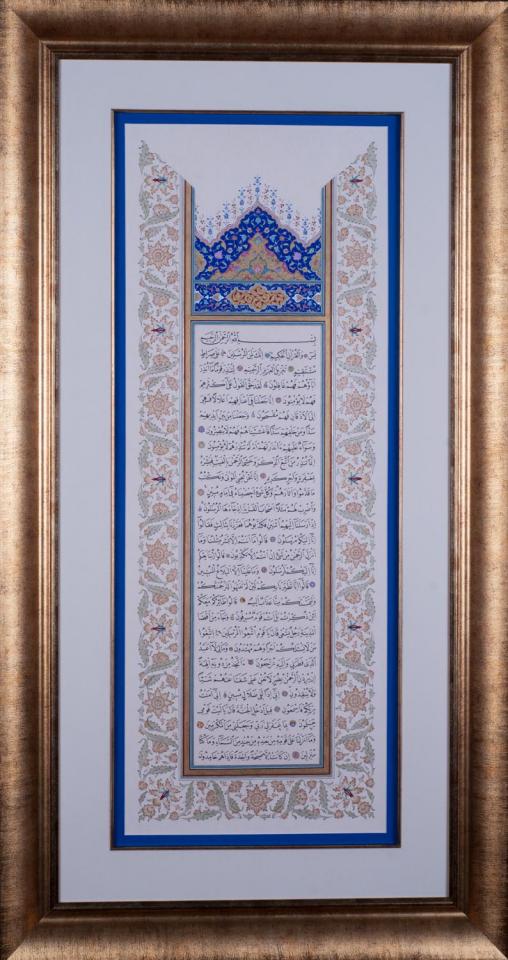 بسم الله الرحمن الرحيم
يس والقرآن الحكيم إنك لمن المرسلين على صراط
مستقيم تنزيل العزيز الرحيم لتنذر قوما ما أنذر
آباؤهم فهم غافلون لقد حق القول على أكثرهم
فهم لا يؤمنون إنا جعلنا في أعناقهم أغلالا فهي
إلى الأذقان فهم مقمحون وجعلنا من بين أيديهم
سدا ومن خلفهم سدا فأغشيناهم فهم لا يبصرون
وسواء عليهم ءأنذرتهم أم لم تنذرهم لا يؤمنون
إنما تنذر من اتبع الذكر وخشي الرحمن بالغيب فبشره
بمغفرة وأجر كريم إنا نحن نحيي الموتى ونكتب
ما قدموا وآثارهم وكل شيء أحصيناه في إمام مبين
واضرب لهم مثلا أصحاب القرية إذ جاءها المرسلون
إذ أرسلنا إليهم اثنين فكذبوهما فعززنا بثالث فقالوا
إنا إليكم مرسلون قالوا ما أنتم إلا بشر مثلنا وما
أنزل الرحمن من شيء إن أنتم إلا تكذبون قالوا ربنا يعلم
إنا إليكم لمرسلون وما علينا إلا البلاغ المبين
قالوا إنا تطيرنا بكم لئن لم تنتهوا لنرجمنكم
وليمسنكم منا عذاب أليم قالوا طائركم معكم
أئن ذكرتم بل أنتم قوم مسرفون وجاء من أقصا
المدينة رجل يسعى قال يا قوم اتبعوا المرسلين اتبعوا
من لا يسألكم أجرا وهم مهتدون وما لي لا أعبد
الذي فطرني وإليه ترجعون ءأتخذ من دونه آلهة
إن يردن الرحمن بضر لا تغن عني شفاعتهم شيئا
ولا ينقذون إني إذا لفي ضلال مبين إني آمنت
بربكم فاسمعون قيل ادخل الجنة قال يا ليت قومي
يعلمون بما غفر لي ربي وجعلني من المكرمين
وما أنزلنا على قومه من بعده من جند من السماء وما كنا
منزلين إن كانت إلا صيحة واحدة فإذا هم خامدون